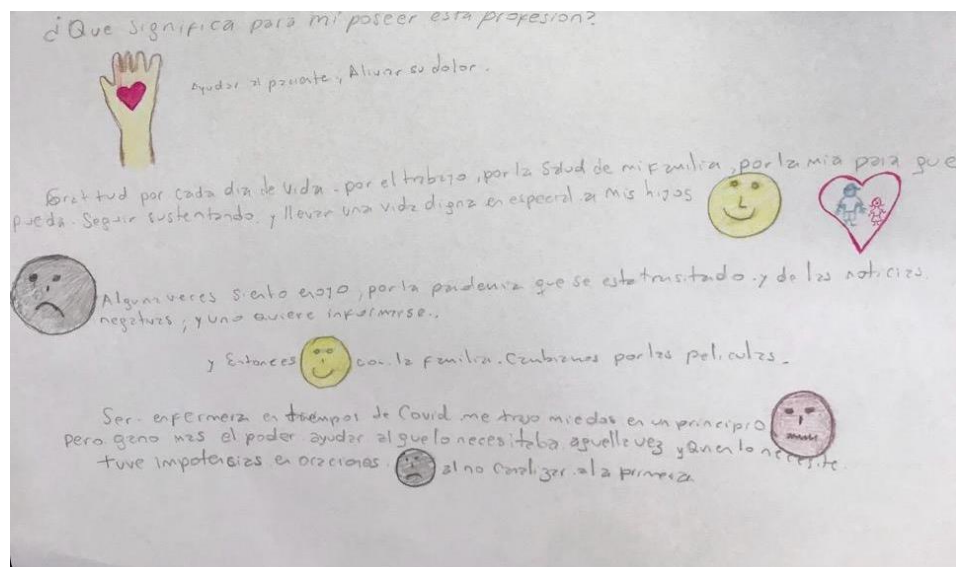 ¿Que significa para mi poseer esta profesion?
Ayudar al paciente, Aliviar su dolor.
Gratitud por cada dia de vida. por el trabajo, por la Salud de mi Familia, por la mia para que
pueda. Seguir sustentando. y llevar una vida digna en especial a mis hijos
Algunas veces siento enojo, por la pandemia que se esta transitado. y de las noticias
negativas, y uno quiere informarse..
y Entonces con la familia. Cambiamos por las peliculas.
Ser. enfermera en tiempos de Covid me trajo miedos en un principio
pero gano mas el poder ayudar al que lo necesitaba aquella vez y Quien lo necesite.
tuve impotencias en ocaciones. al no canalizar a la primera